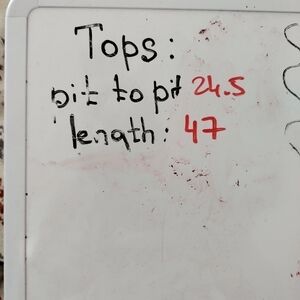 Tops:
pit to pit 24.5
length: 47